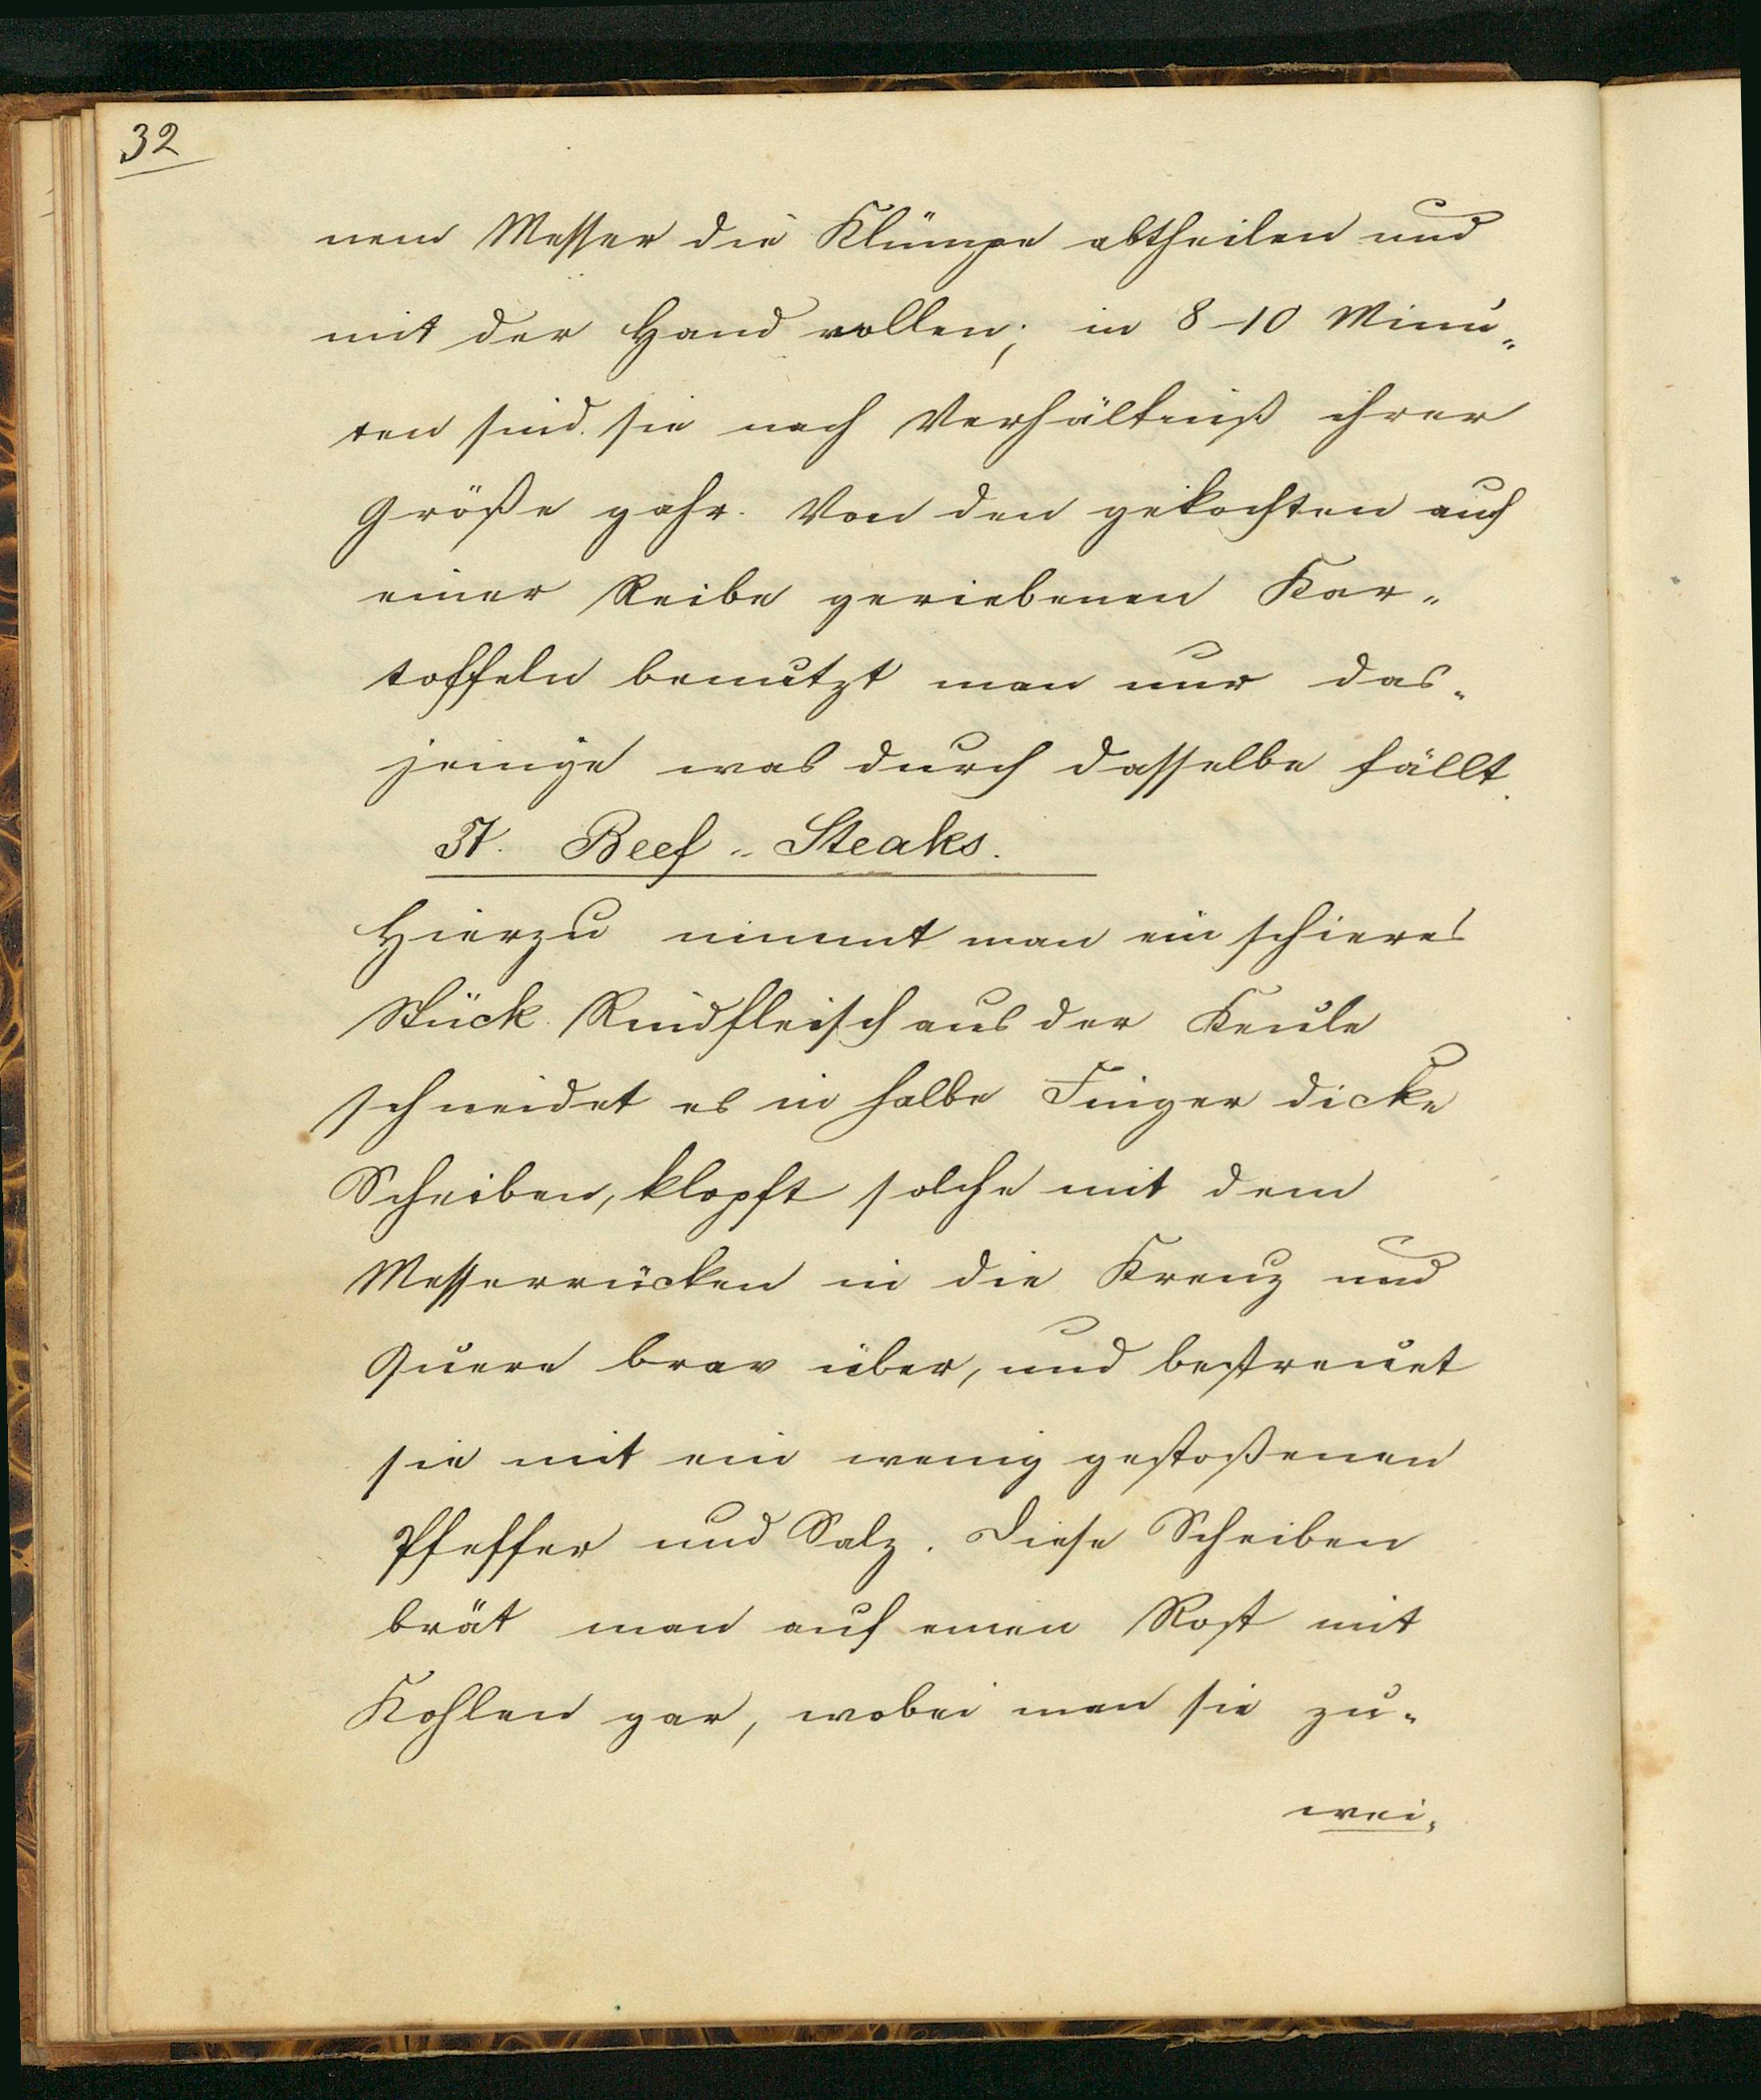 32
nem Messer die Klümpe abtheilen und
mit der Hand rollen; in 8-10 Minu„
ten sind sie nach Verhältniß ihrer
Größe gahr. Von den gekochten auf
einer Reibe geriebenen Kar„
toffeln benutzt man nur das„
jenige was durch dasselbe fällt.
Beef „ Steaks.
Hierzu nimmt man ein schieres
Stück Rindfleisch aus der Keule
schneidet es in halbe Finger dicke
Scheiben, klopft solche mit dem
Messerrücken in die Kreuz und
Quere brav über, und bestreuet
sie mit ein wenig gestoßenen
Pfeffer und Salz. Diese Scheiben
brät man auf einen Rost mit
Kohlen gar, wobei man sie zu„
wei„